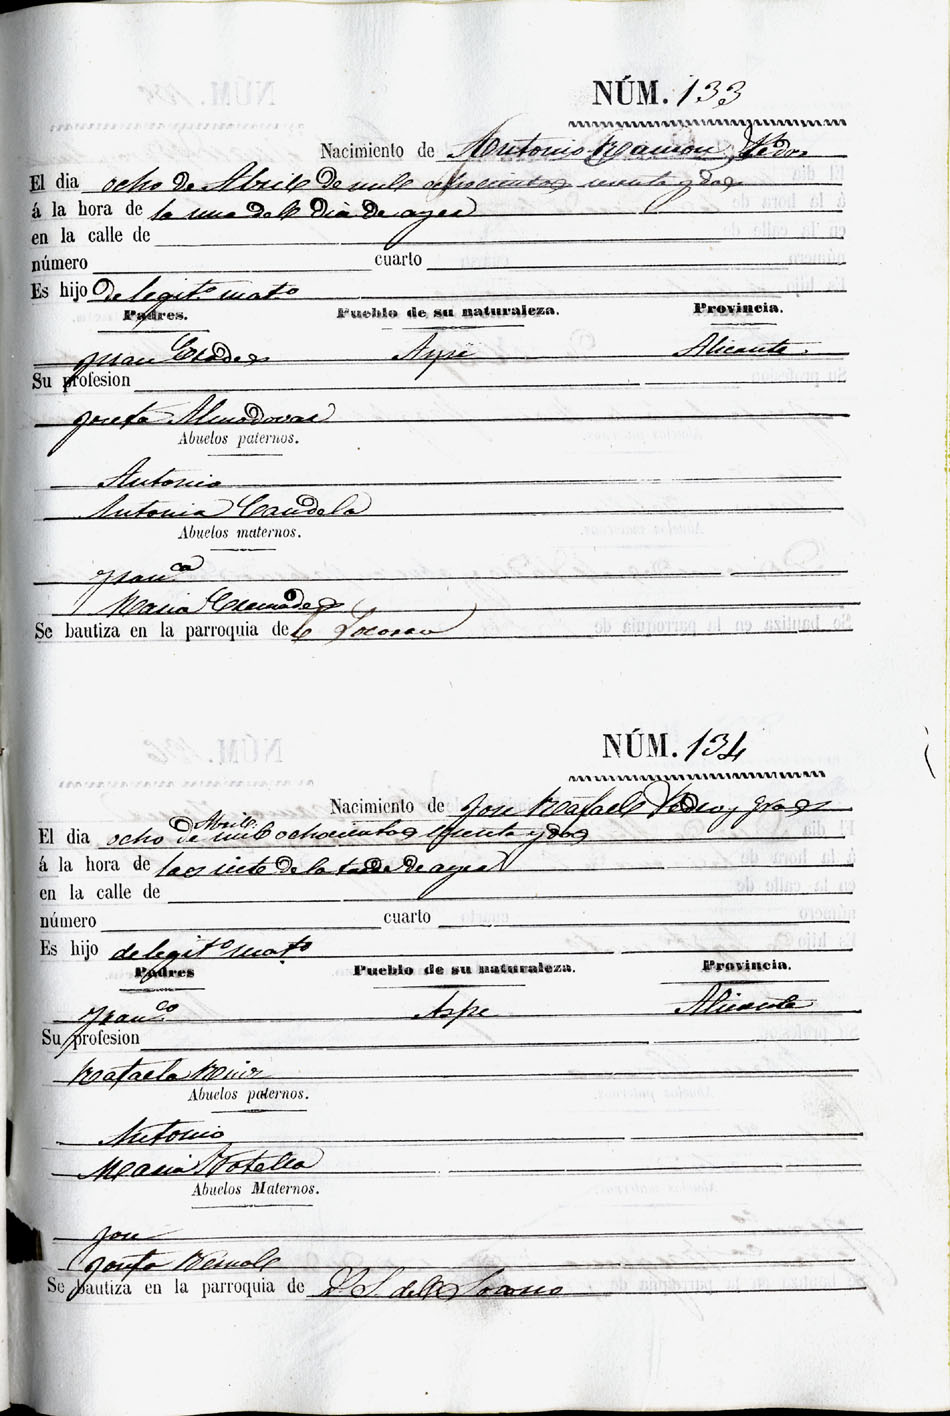 NÚM. 133
Nacimiento de Antonio Ramon Pedro
El dia ocho de Abril de mil ochocientos y dos
á la hora de la una del dia de ayer
en la calle de
número cuarto
Es hijo de legit.º mat.º
Padres. Pueblo de su naturaleza. Provincia.
Juan Aspe Alicante.
Su profesion
Josefa Almodovar
Abuelos paternos.
Antonio
Antonia Candela
Abuelos maternos.
Fran.co
Maria Cremades
Se bautiza en la parroquia de el Socorro
NÚM. 134
Nacimiento de Jose Rafael Pedro y
Abril
El dia ocho de mil ochocientos y dos
á la hora de las siete de la tarde de ayer
en la calle de
número cuarto
Es hijo de legit.º mat.º
Padres Pueblo de su naturaleza. Provincia.
Fran.co Aspe Alicante
Su profesion
Rafaela
Abuelos paternos.
Antonio
Maria Botella
Abuelos Maternos.
Jose
Josefa
Se bautiza en la parroquia de N. S. del Socorro